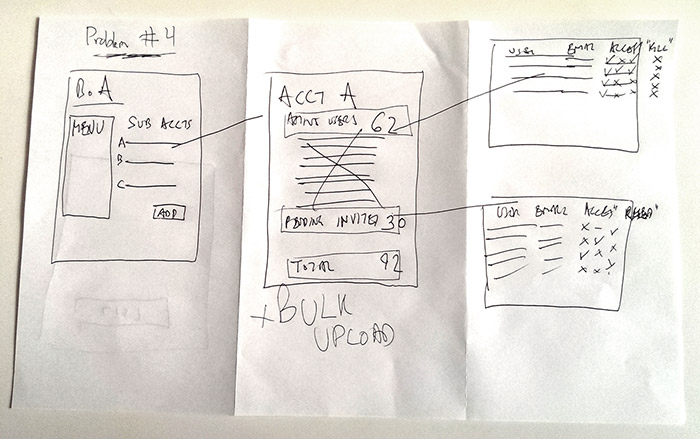 Problem #4
B.o.A
MENU
SUB ACCTS
A
B
C
ADD
ACCT A
ACTIVE USERS 62
PENDING INVITES 30
TOTAL 92
+BULK
UPLOAD
USER EMAIL ACCESS "KILL"
✓ x x x
✓ ✓ ✓ x
x x x x
✓ x x x
x
USER EMAIL ACCESS
x – ✓
x ✓ x
✓ x x
x x